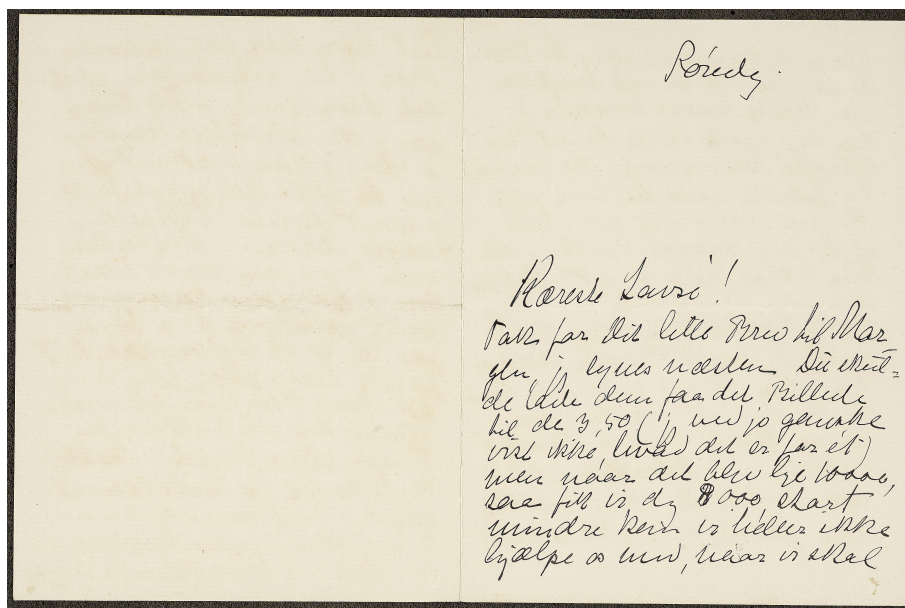 Kæreste Lavsi!
Tak for Dit lille Brev til Mor
gen j synes næsten Du skul=
de lade dem faa det Billede
til de 3,50 (j ved jo ganske
vist ikke, hvad det er for ét)
men naar det blev lje 10000,
saa fik vi dg 8000, start
mindre kan vi heller ikke
hjælpe os med, naar vi skal